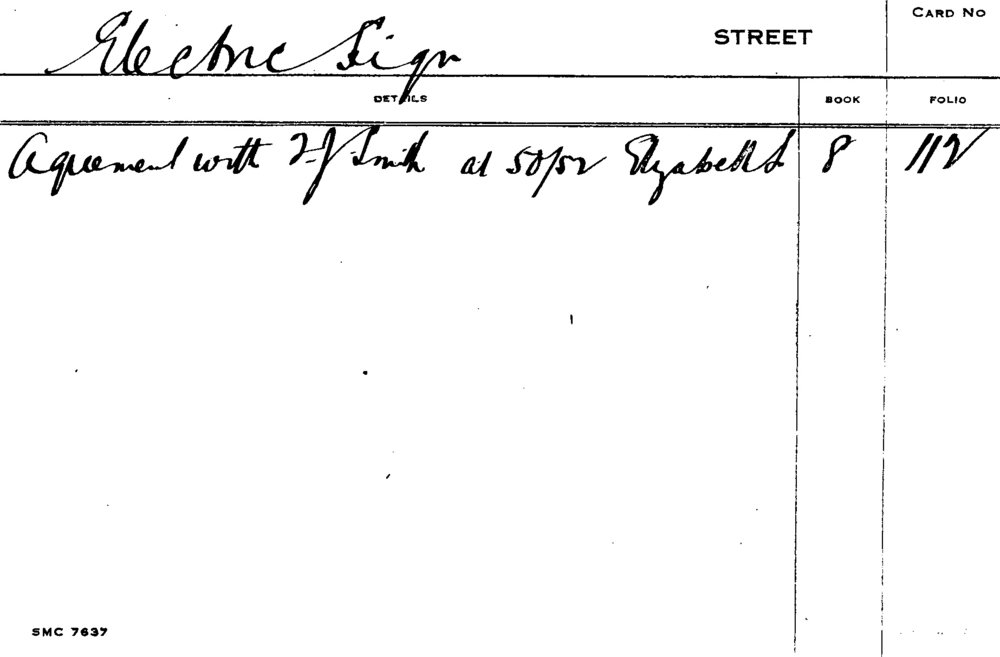 CARD NO
Electric Sign STREET
DETAILS BOOK FOLIO
Agreement with Smith at 50/52 Elizabeth St 8 112
SMC 7637